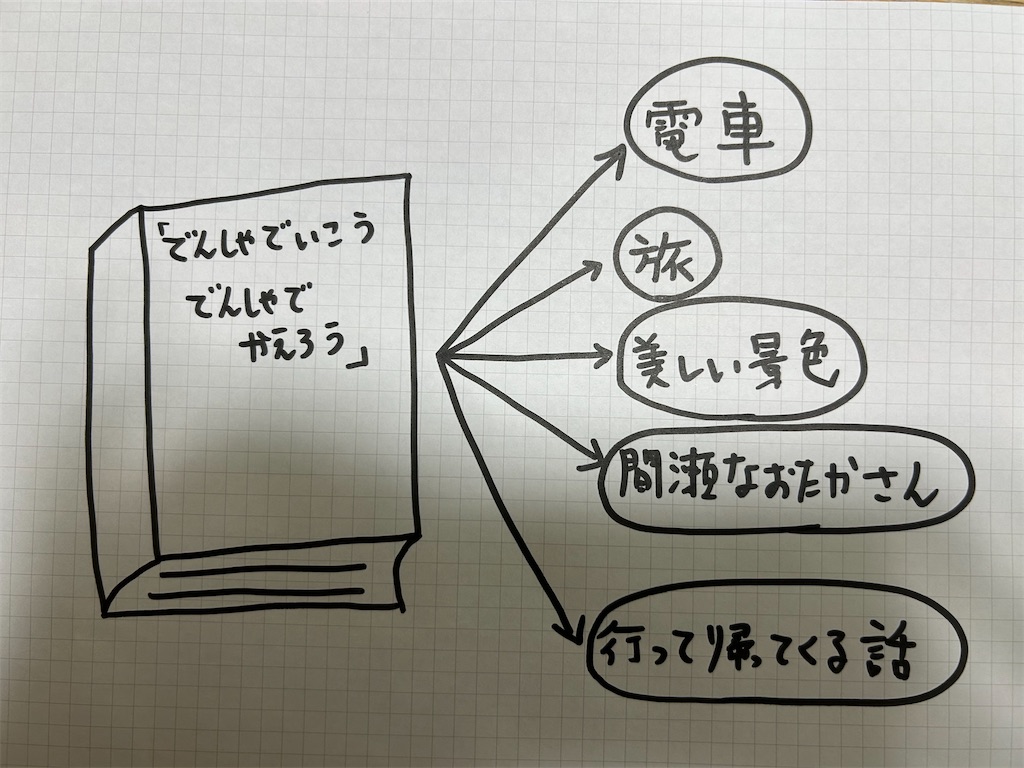 「でんしゃでいこう
でんしゃで
かえろう」
電車
旅
美しい景色
間瀬なおたかさん
行って帰ってくる話